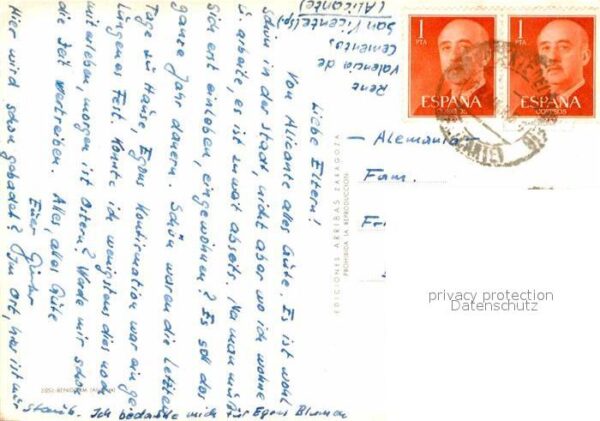 Liebe Eltern!
Von Alicante alles Gute. Es ist wohl
schön in der Stadt, nicht aber wo ich wohne
u. arbeite, es ist zu weit abseits. Na man muß
sich erst einleben, eingewöhnen? Es soll das
ganze Jahr dauern. Schön waren die letzten
Tage zu Hause, Egons Konfirmation war ein ge-
lungenes Fest. Konnte ich wenigstens dies noch
mit erleben, morgen ist Ostern? Werde mir schon
die Zeit vertreiben. Alles, alles Gute
Euer Günter
Hier wird schon gebadet? Im Ort, hier ist nur
Staub. Ich bedanke mich für Egons Blumen
Rene
Valencia de
Cementos
San Vicente (sp)
(Alicante)
1
PTA
ESPAÑA
CORREOS
1
PTA
ESPAÑA
CORREOS
- Alemania -
Fam.
EDICIONES ARRIBAS ZARAGOZA
PROHIBIDA LA REPRODUCCION
privacy protection
Datenschutz